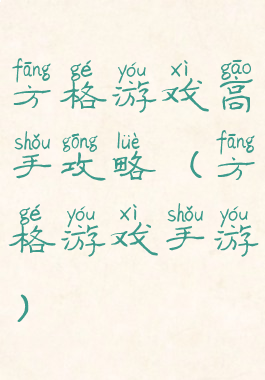 fāng gé yóu xì gāo
方格游戏高
shǒu gōng lüè fāng
手攻略（方
gé yóu xì shǒu yóu
格游戏手游
）